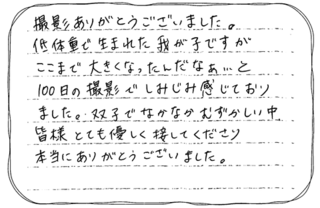 撮影ありがとうございました。
低体重で生まれた我が子ですが
ここまで大きくなったんだなぁ…と
100日の撮影でしみじみ感じており
ました。双子でなかなかむずかしい中
皆様とても優しく接してくださり
本当にありがとうございました。